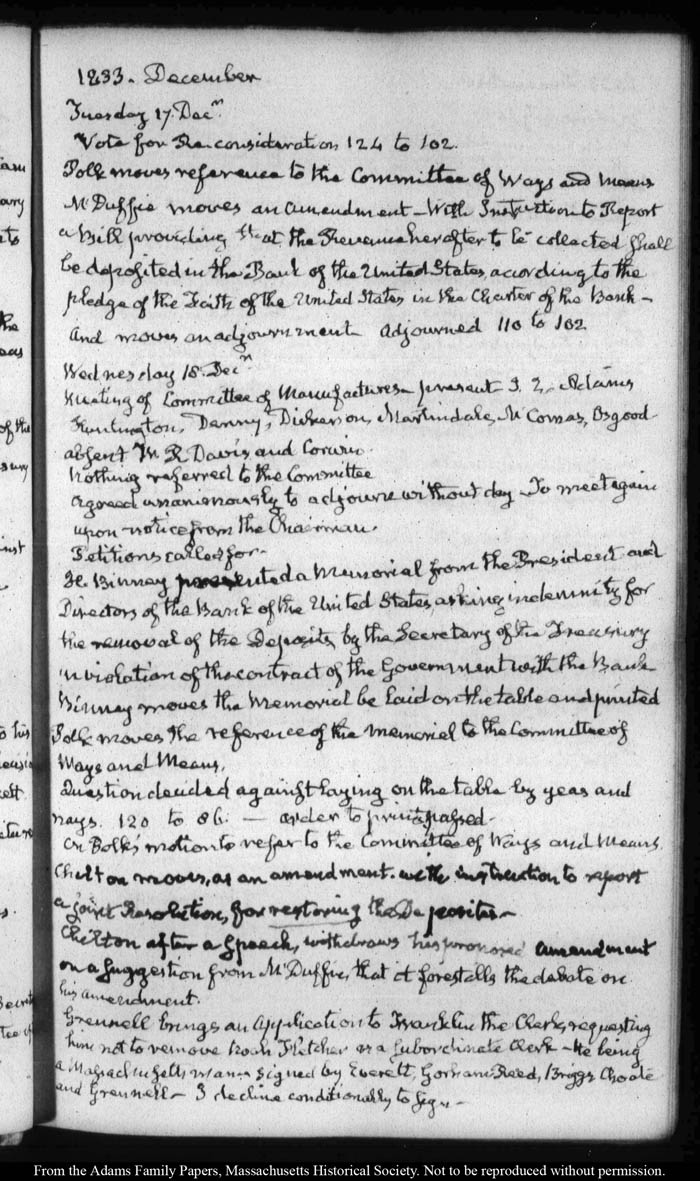 1833. December
Tuesday 17. Decr.
Vote for Reconsideration 124 to 102.
Polk moves reference to the Committee of Ways and Means
McDuffie moves an amendment – With Instruction to Report
a Bill providing that the Revenue hereafter to be collected shall
be deposited in the Bank of the United States, according to the
pledge of the Faith of the United States in the Charter of the Bank –
And moves an adjournment – adjourned 110 to 102
Wednesday 18. Decr.
Meeting of Committee of Manufactures – present J. Q. Adams
Huntington, Denny, Dickerson, Martindale, McComas, Osgood
absent M R Davis and Corwin.
Nothing referred to the Committee
Agreed unanimously to adjourn without day – To meet again
upon notice from the Chairman.
Petitions called for.
H. Binney presented a Memorial from the President and
Directors of the Bank of the United States, asking indemnity for
the removal of the Deposits by the Secretary of the Treasury
in violation of the contract of the Government with the Bank
Binney moves the Memorial be laid on the table and printed
Polk moves the reference of the Memorial to the Committee of
Ways and Means.
Question decided against laying on the table by yeas and
nays. 120 to 86. — order to print passed.
On Polk's motion to refer to the Committee of Ways and Means
Chilton moves, as an amendment. with instruction to report
a joint Resolution, for restoring the Deposites –
Chilton after a Speech, withdraws his proposed amendment
on a suggestion from McDuffie, that it forestalls the debate on
his amendment.
Grennell brings an Application to Franklin the Clerk, requesting
him not to remove Noah Fletcher as a subordinate Clerk – He being
a Massachusetts man – signed by Everett, Gorham, Reed, Briggs, Choate
and Grennell – I decline conditionally to sign –
From the Adams Family Papers, Massachusetts Historical Society. Not to be reproduced without permission.